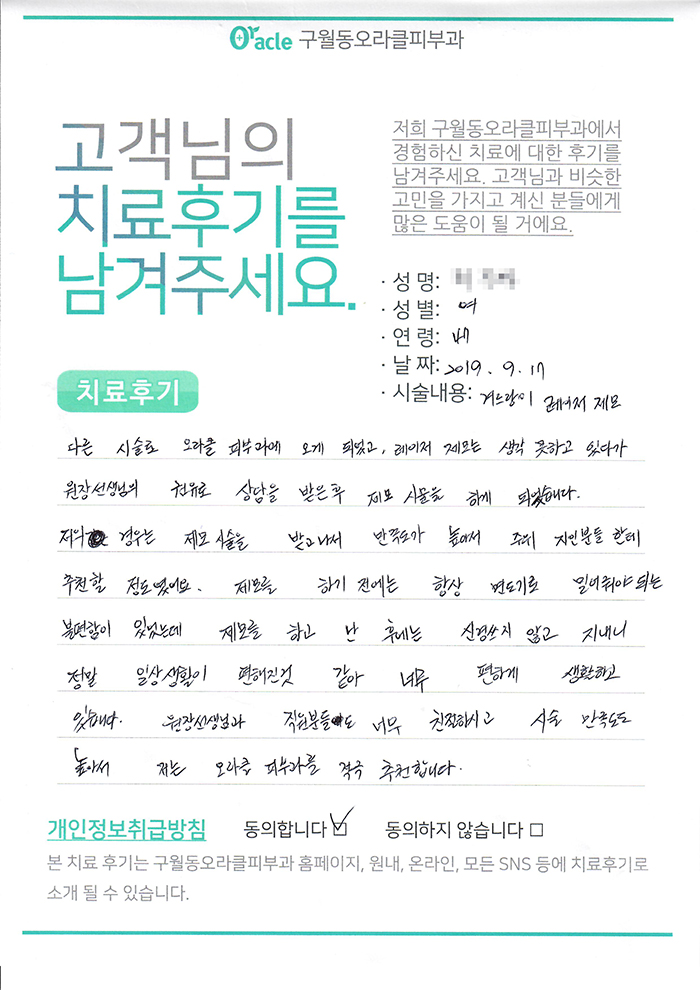 Oracle 구월동오라클피부과
고객님의
치료후기를
남겨주세요.
저희 구월동오라클피부과에서
경험하신 치료에 대한 후기를
남겨주세요. 고객님과 비슷한
고민을 가지고 계신 분들에게
많은 도움이 될 거에요.
· 성 명:
· 성 별: 여
· 연 령:
· 날 짜: 2019. 9. 17
· 시술내용: 겨드랑이 레이저 제모
치료후기
다른 시술로 오라클 피부과에 오게 되었고, 레이저 제모는 생각 못하고 있다가
원장선생님의 권유로 상담을 받은 후 제모 시술을 하게 되었습니다.
저의 경우는 제모 시술을 받고나서 만족도가 높아서 주위 지인분들 한테
추천할 정도였어요. 제모를 하기 전에는 항상 면도기로 밀어줘야 되는
불편함이 있었는데 제모를 하고 난 후에는 신경쓰지 않고 지내니
정말 일상생활이 편해진것 같아 너무 편하게 생활하고
있습니다. 원장선생님과 직원분들도 너무 친절하시고 시술 만족도도
높아서 저는 오라클 피부과를 적극 추천합니다.
개인정보취급방침 동의합니다 ☑ 동의하지 않습니다 □
본 치료 후기는 구월동오라클피부과 홈페이지, 원내, 온라인, 모든 SNS 등에 치료후기로
소개 될 수 있습니다.